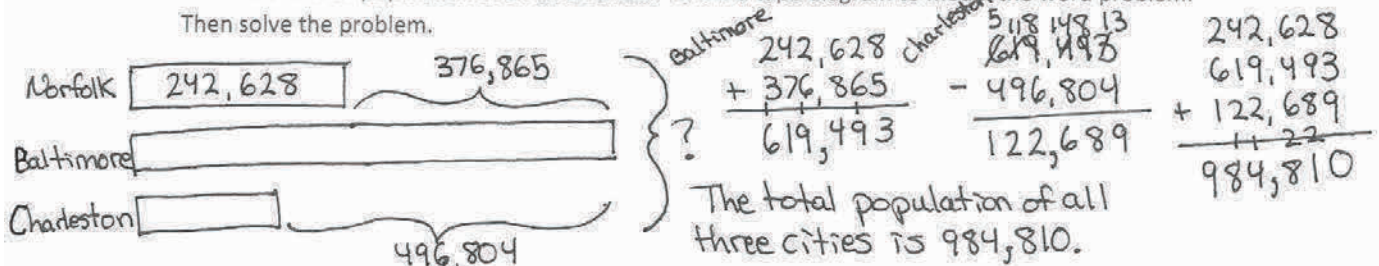 Then solve the problem.
Norfolk 242,628 376,865
Baltimore
Charleston
496,804
?
Baltimore
242,628
+ 376,865
619,493
Charleston
5 11 18 14 8 13
619,493
- 496,804
122,689
242,628
619,493
+ 122,689
984,810
The total population of all
three cities is 984,810.